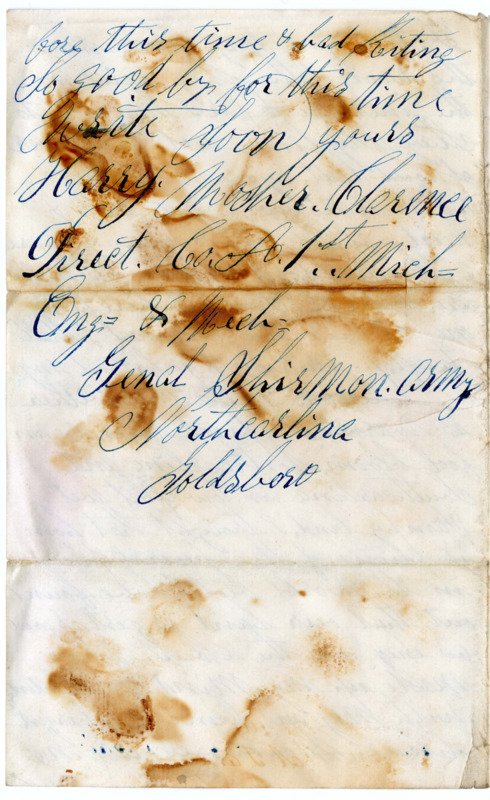 fore this time & bad Riting
So good by for this time
Write Soon yours
Harry. Mother. Clarence
Direct. Co. H. 1st.. Mich=
Eng= & Mech=
Genal Shirmon. Army
Northcarlina
Goldsboro